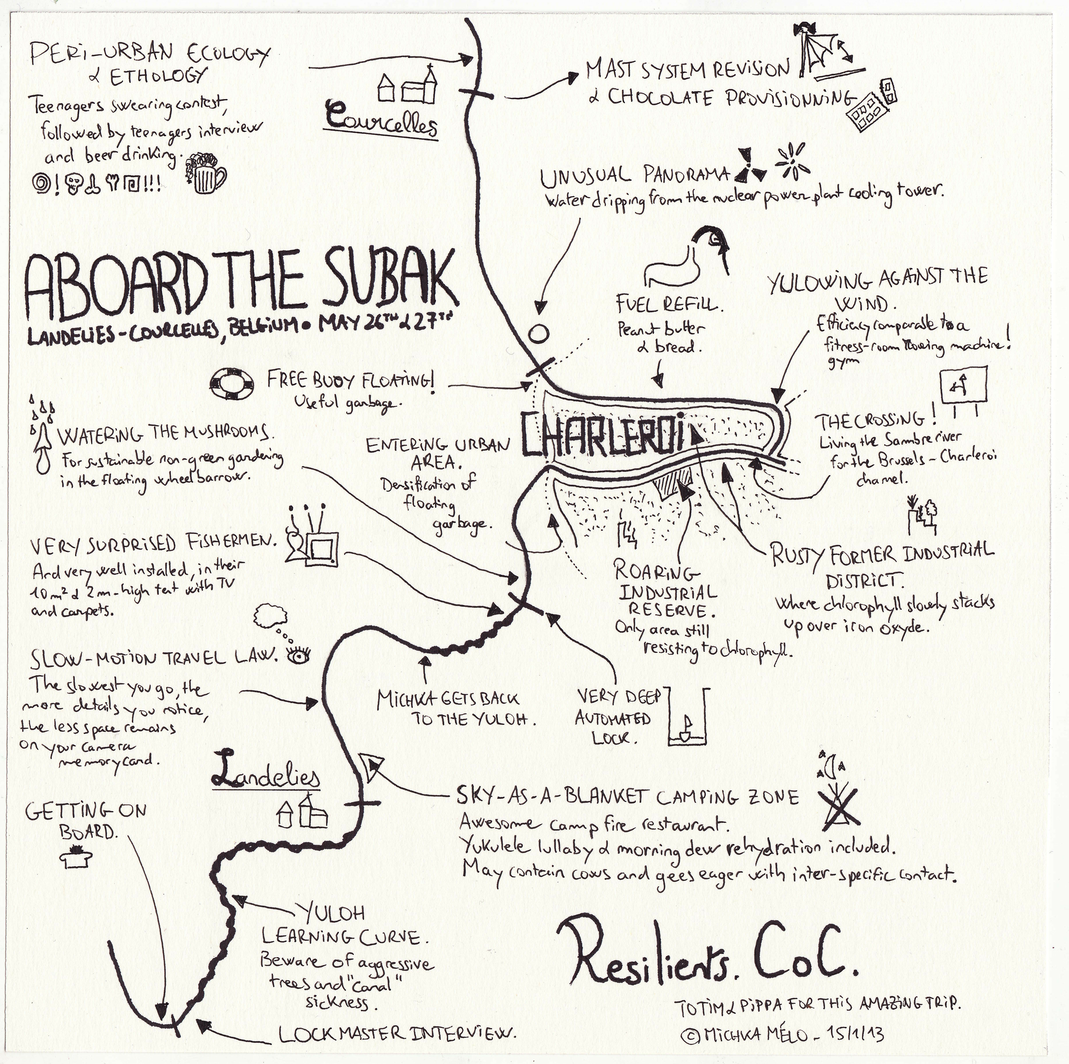 PERI-URBAN ECOLOGY
& ETHOLOGY
Teenagers swearing contest,
followed by teenagers interview
and beer drinking.
Courcelles
MAST SYSTEM REVISION
& CHOCOLATE PROVISIONNING
UNUSUAL PANORAMA
Water dripping from the nuclear power plant cooling tower.
ABOARD THE SUBAK
LANDELIES-COURCELLES, BELGIUM • MAY 26TH & 27TH
FUEL REFILL.
Peanut butter
& bread.
YULOWING AGAINST THE
WIND.
Efficiency comparable to a
fitness-room rowing machine!
gym
FREE BODY FLOATING!
Useful garbage.
CHARLEROI
THE CROSSING!
Living the Sambre river
for the Brussels - Charleroi
channel.
WATERING THE MUSHROOMS.
For sustainable non-green gardening
in the floating wheelbarrow.
ENTERING URBAN
AREA.
Densification of
floating
garbage.
VERY SURPRISED FISHERMEN.
And very well installed, in their
10m² & 2m-high tent with TV
and carpets.
ROARING
INDUSTRIAL
RESERVE.
Only area still
resisting to chlorophyll.
RUSTY FORMER INDUSTRIAL
DISTRICT.
Where chlorophyll slowly stacks
up over iron oxyde.
SLOW-MOTION TRAVEL LAW.
The slowest you go, the
more details you notice,
the less space remains
on your camera
memory card.
MICHKA GETS BACK
TO THE YULOH.
VERY DEEP
AUTOMATED
LOCK.
Landelies
GETTING ON
BOARD.
SKY-AS-A-BLANKET CAMPING ZONE
Awesome camp fire restaurant.
Yukulele lullaby & morning dew rehydration included.
May contain cows and gees eager with inter-specific contact.
YULOH
LEARNING CURVE.
Beware of aggressive
trees and "canal"
sickness.
LOCKMASTER INTERVIEW.
Resilients. CoC.
TO TIM & PIPPA FOR THIS AMAZING TRIP.
© MICHKA MÉLO - 15/1/13